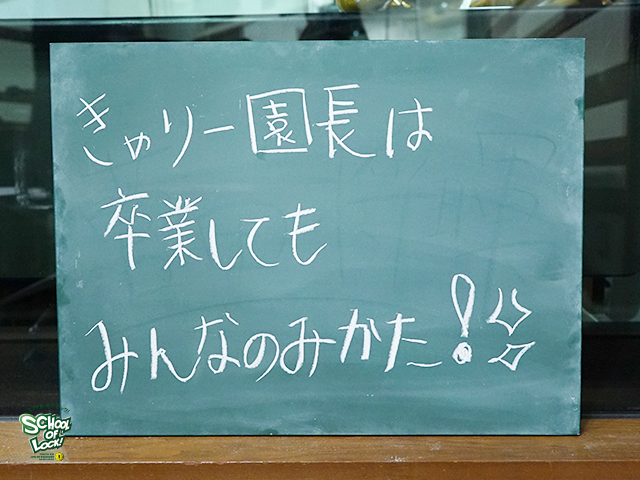 きゃりー園長は
卒業しても
みんなのみかた!
SCHOOL
OF
LOCK!